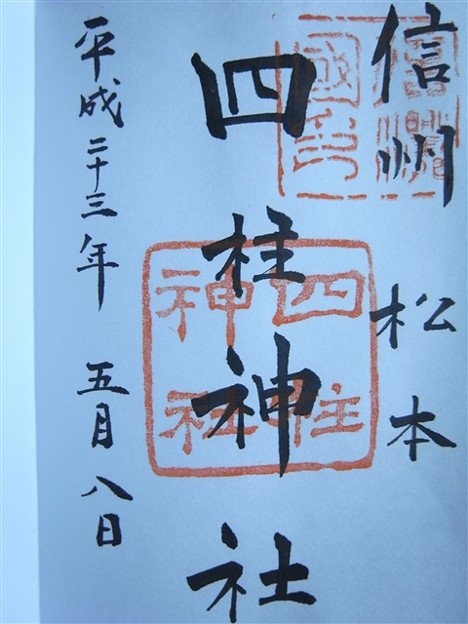 信州 松本
四柱神社
四柱
神社
平成二十三年 五月八日